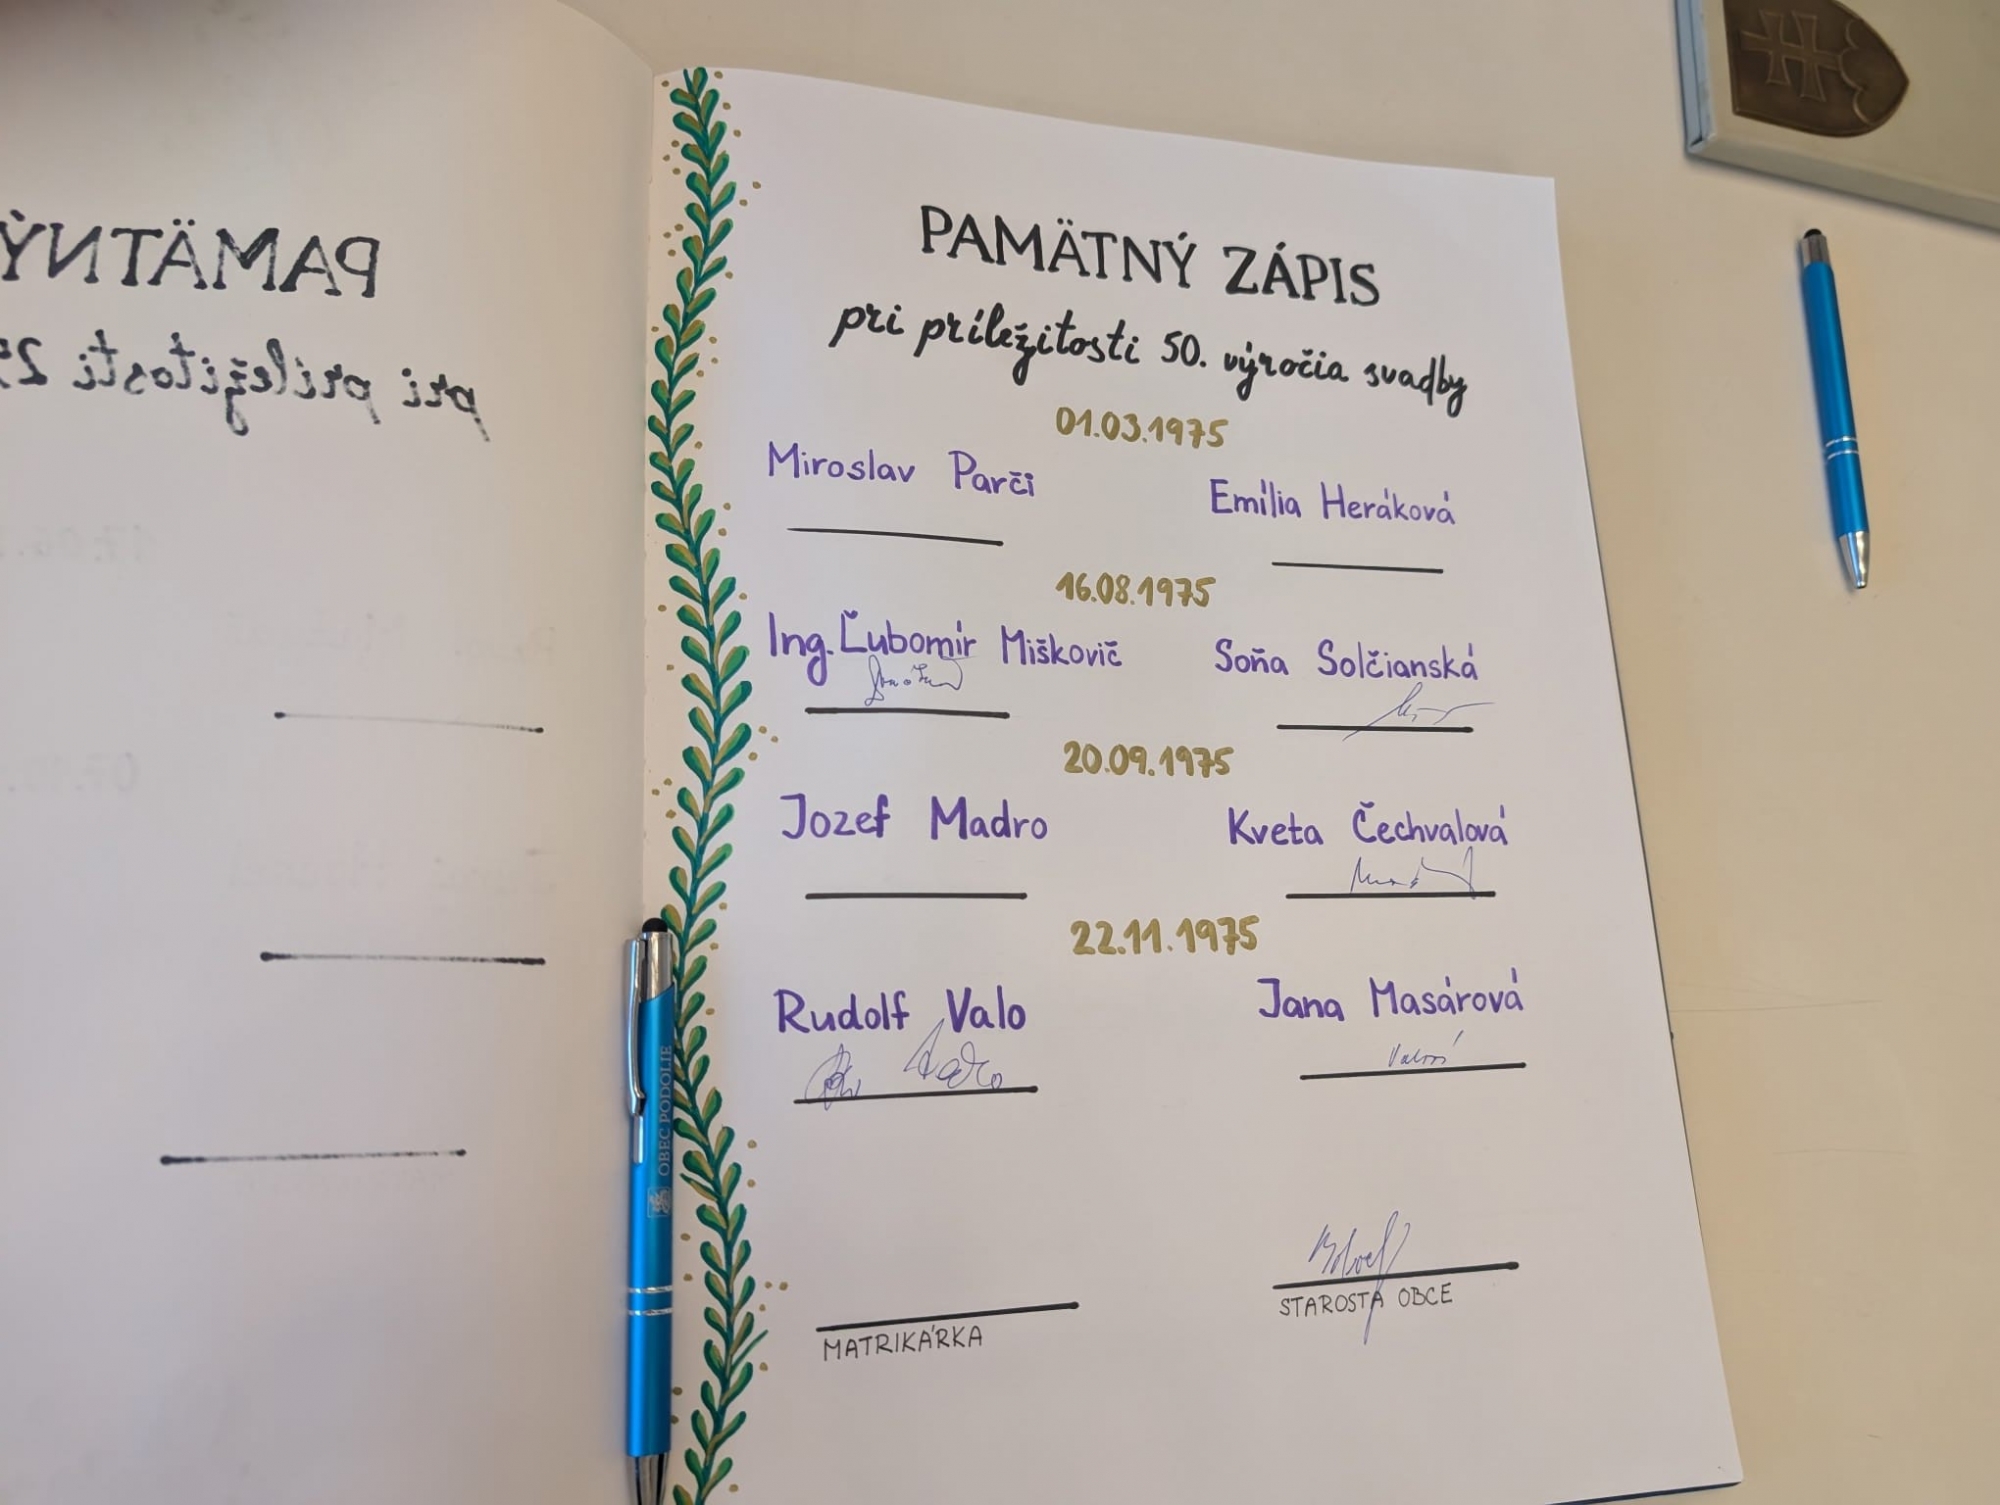 PAMÄTNÝ
pri príležitosti 25
PAMÄTNÝ ZÁPIS
pri príležitosti 50. výročia svadby
01.03.1975
Miroslav Parči Emília Heráková
16.08.1975
Ing. Ľubomír Miškovič Soňa Solčianská
20.09.1975
Jozef Madro Kveta Čechvalová
22.11.1975
Rudolf Valo Jana Masárová
MATRIKÁRKA STAROSTA OBCE
OBEC PODOLIE